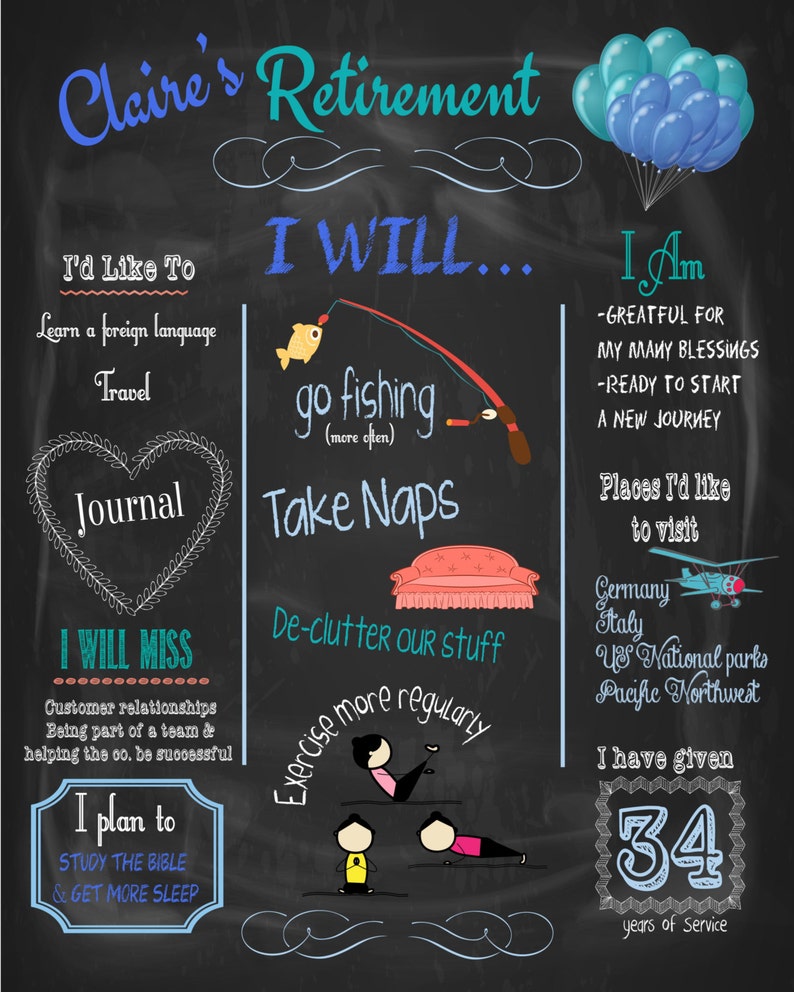 Claire's Retirement
I'd Like To
Learn a foreign language
Travel
Journal
I WILL MISS
Customer relationships
Being part of a team &
helping the co. be successful
I plan to
STUDY THE BIBLE
& GET MORE SLEEP
I WILL...
go fishing
(more often)
Take Naps
De-clutter our stuff
Exercise more regularly
I Am
-GREATFUL FOR
MY MANY BLESSINGS
-READY TO START
A NEW JOURNEY
Places I'd like
to visit
Germany
Italy
US National parks
Pacific Northwest
I have given
34
years of Service